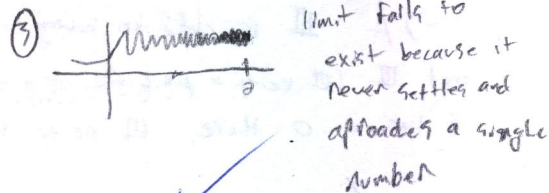 ③
a
limit fails to
exist because it
never settles and
aproaches a single
number